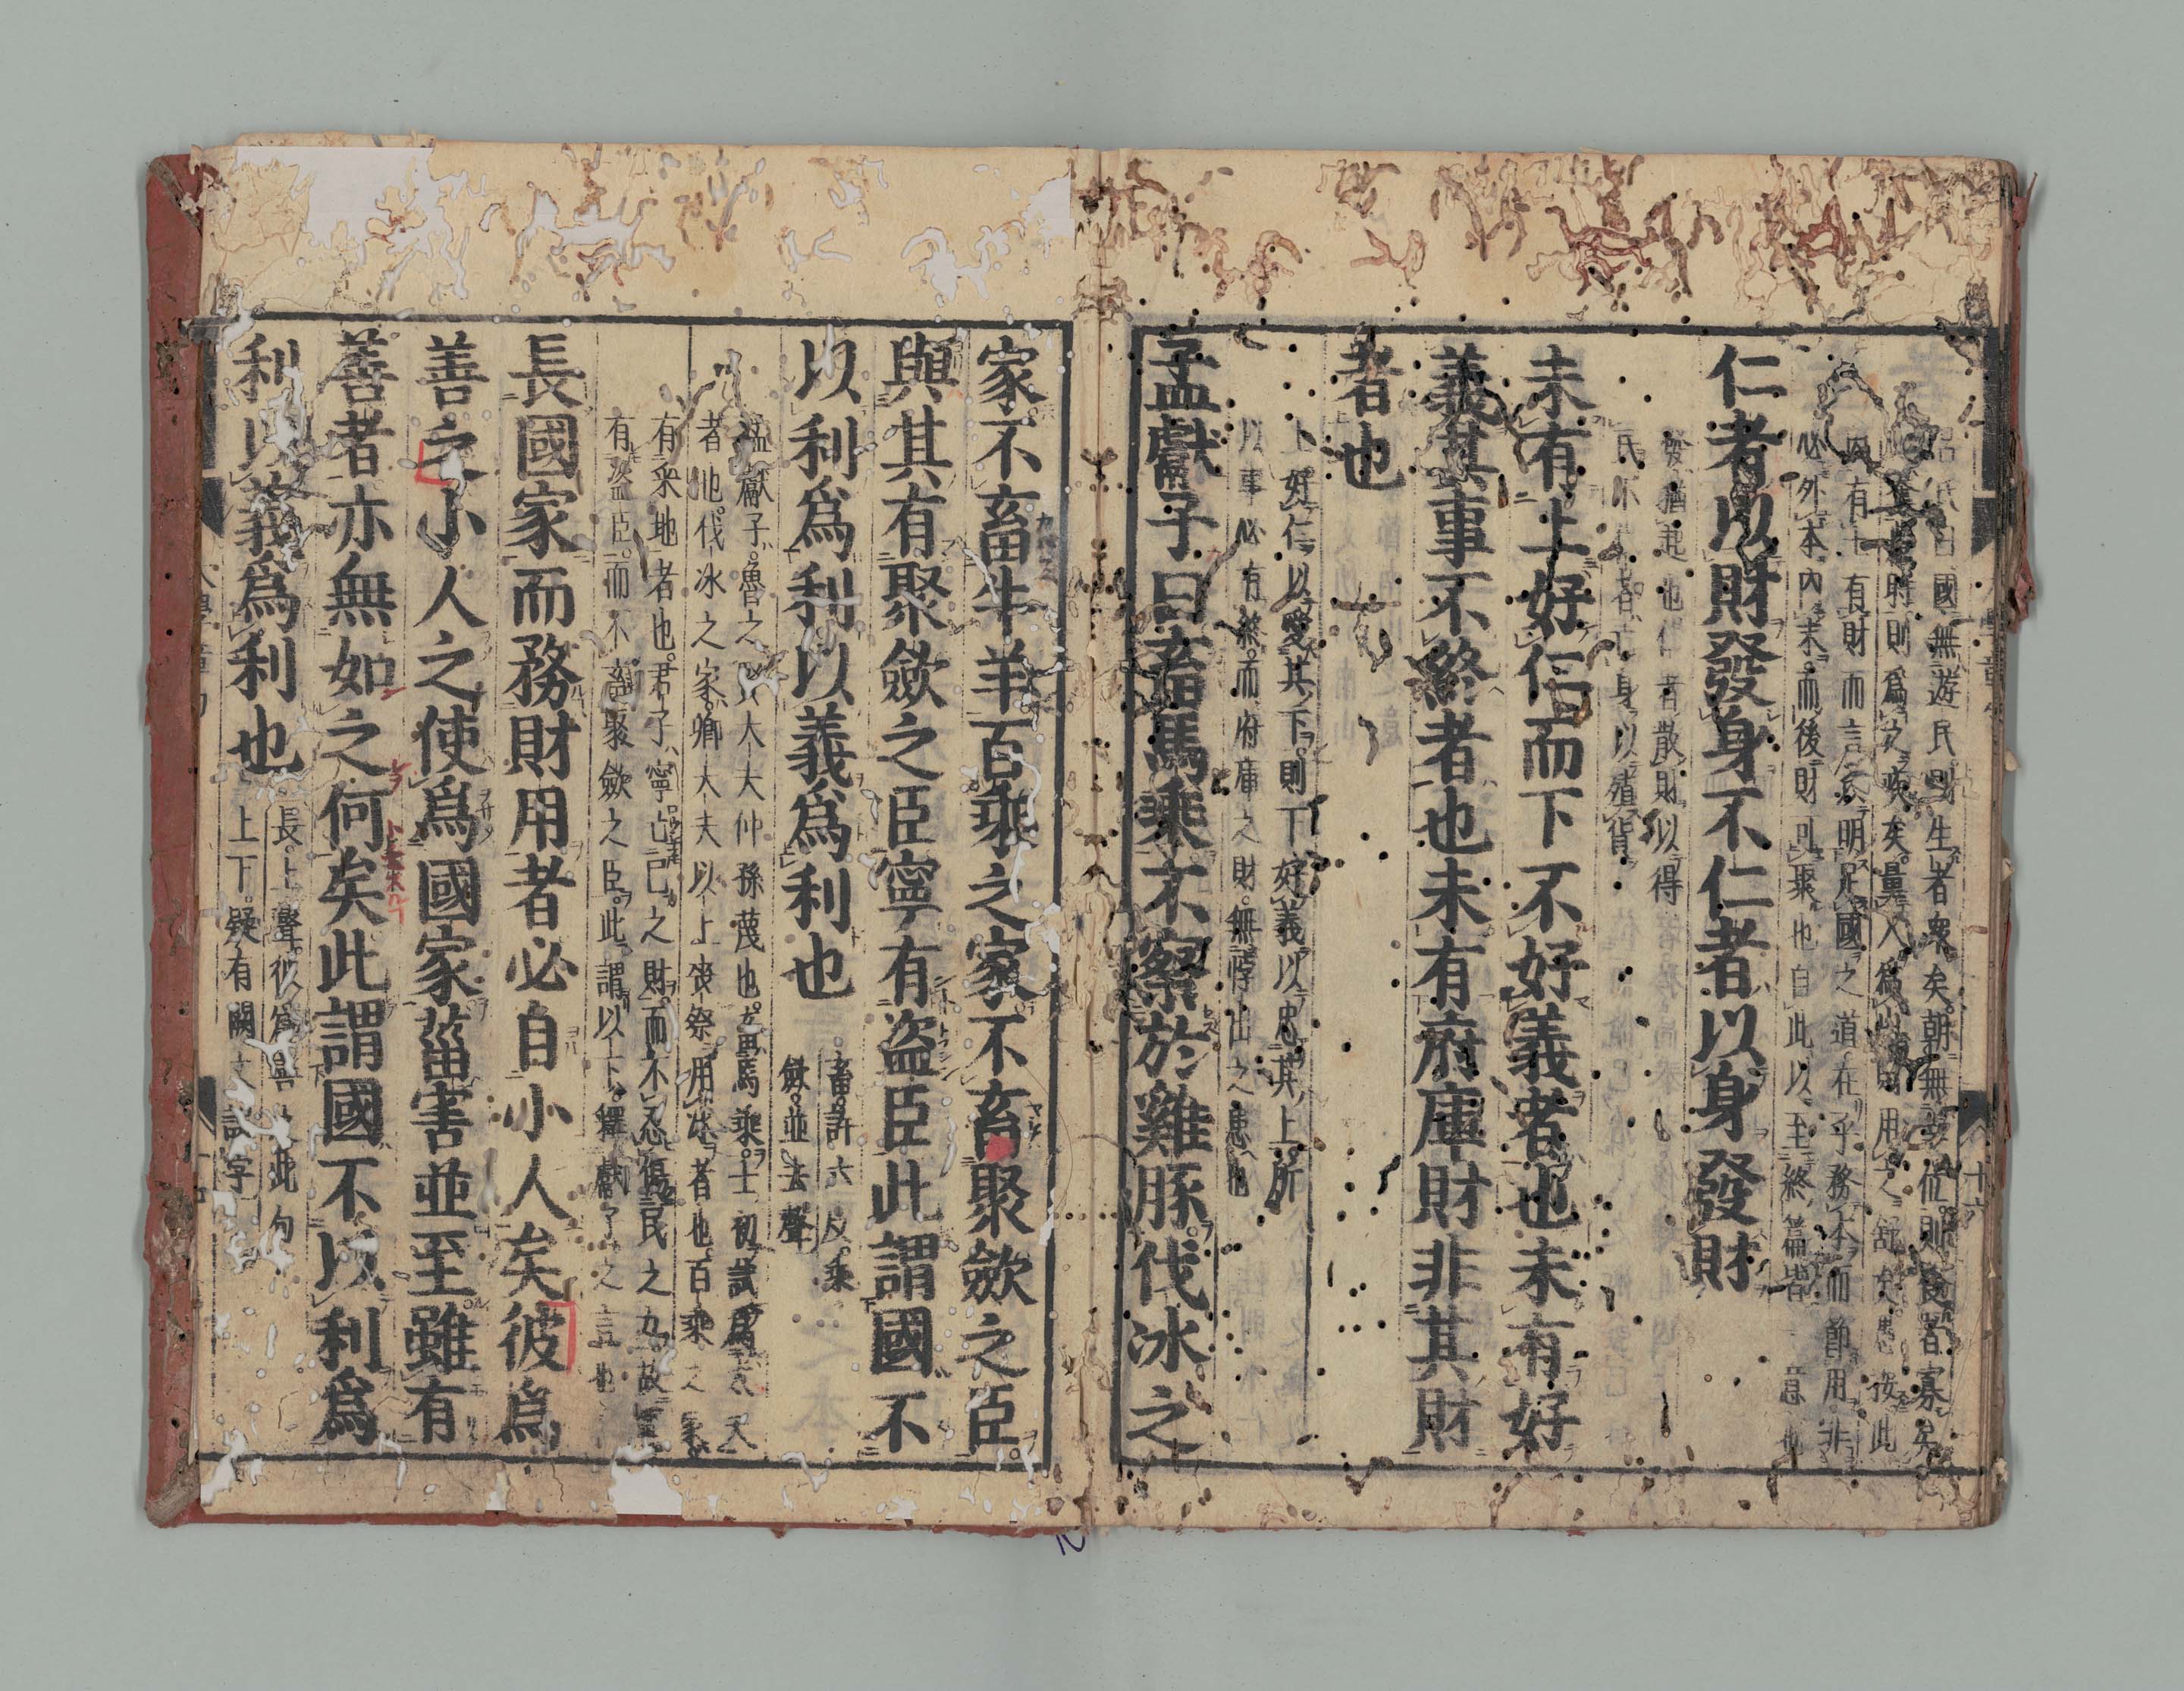 呂氏曰國無遊民則生者衆矣朝無幸位則食者寡矣
時則爲之疾矣量入爲出則用之舒矣愚按此
因有土有財而言以明足國之道在乎務本而節用非
必外本內末而後財可聚也自此以至終篇皆一意也
仁者以財發身不仁者以身發財
發猶起也仁者散財以得
民不仁者亡身以殖貨
未有上好仁而下不好義者也未有好
義其事不終者也未有府庫財非其財
者也
上好仁以愛其下則下好義以忠其上所
以事必有終而府庫之財無悖出之患也
孟獻子曰畜馬乘不察於雞豚伐冰之
家不畜牛羊百乘之家不畜聚斂之臣
與其有聚斂之臣寧有盜臣此謂國不
以利爲利以義爲利也
畜許六反乘
斂並去聲
孟獻子魯之賢大夫仲孫蔑也畜馬乘士初試爲大夫
者也伐冰之家卿大夫以上喪祭用冰者也百乘之家
有采地者也君子寧亡己之財而不忍傷民之力故寧
有盜臣而不畜聚斂之臣此謂以下釋獻子之言也
長國家而務財用者必自小人矣彼爲
善之小人之使爲國家菑害並至雖有
善者亦無如之何矣此謂國不以利爲
利以義爲利也
長上聲彼爲善之此句
上下疑有闕文誤字
十六